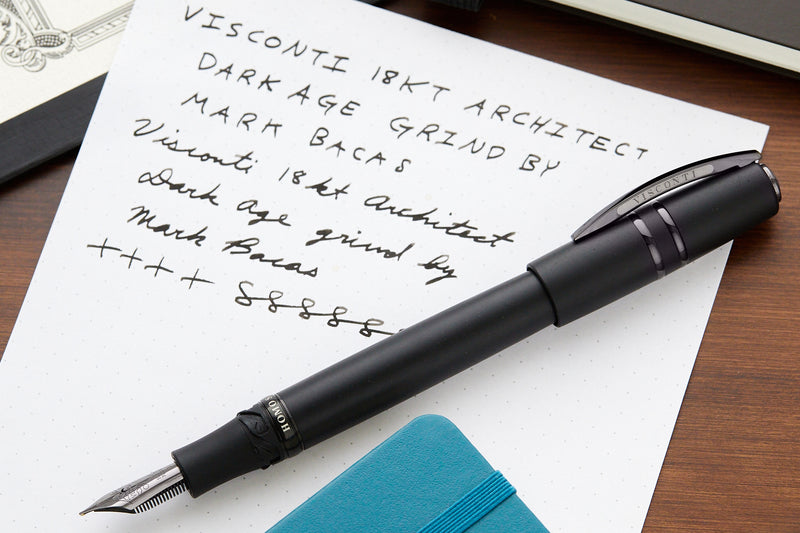 VISCONTI 18KT ARCHITECT
DARK AGE GRIND BY
MARK BACAS
Visconti 18kt Architect
Dark Age grind by
Mark Bacas
++++ 88888
VISCONTI
HOMO